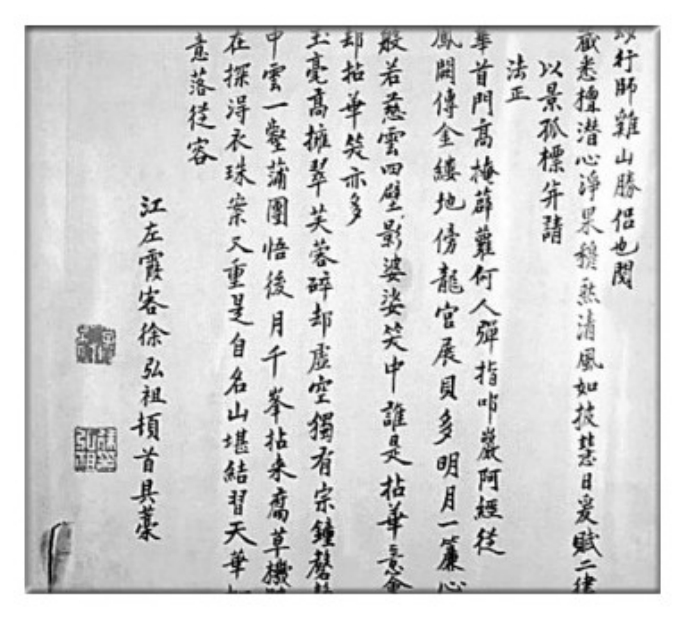 行師雞山勝侶也閱
藏悉檀潛心淨果穆然清風如披慧日爰賦二律
以景孤標并請
法正
華首門高掩薜蘿何人彈指叩巖阿經從
鳳闕傳金縷地傍龍宮展貝多明月一簾心
般若慈雲四壁影婆娑笑中誰是拈華意會
却拈華笑亦多
玉毫高擁翠芙蓉碎却虛空獨有宗鐘磬
中雲一壑蒲團悟後月千峯拈來腐草機
在探得衣珠案又重是自名山堪結習天華
意落從容
江左霞客徐弘祖頓首具藁